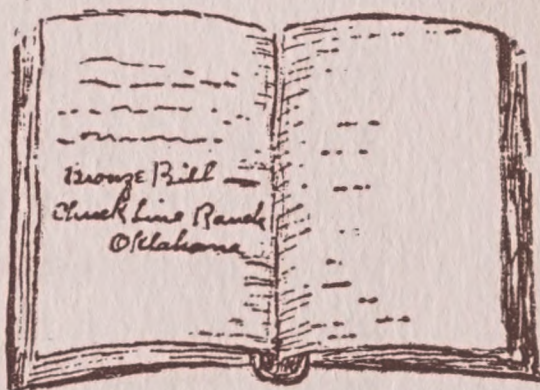 Bronze Bill —
Chuck Line Ranch
Oklahoma